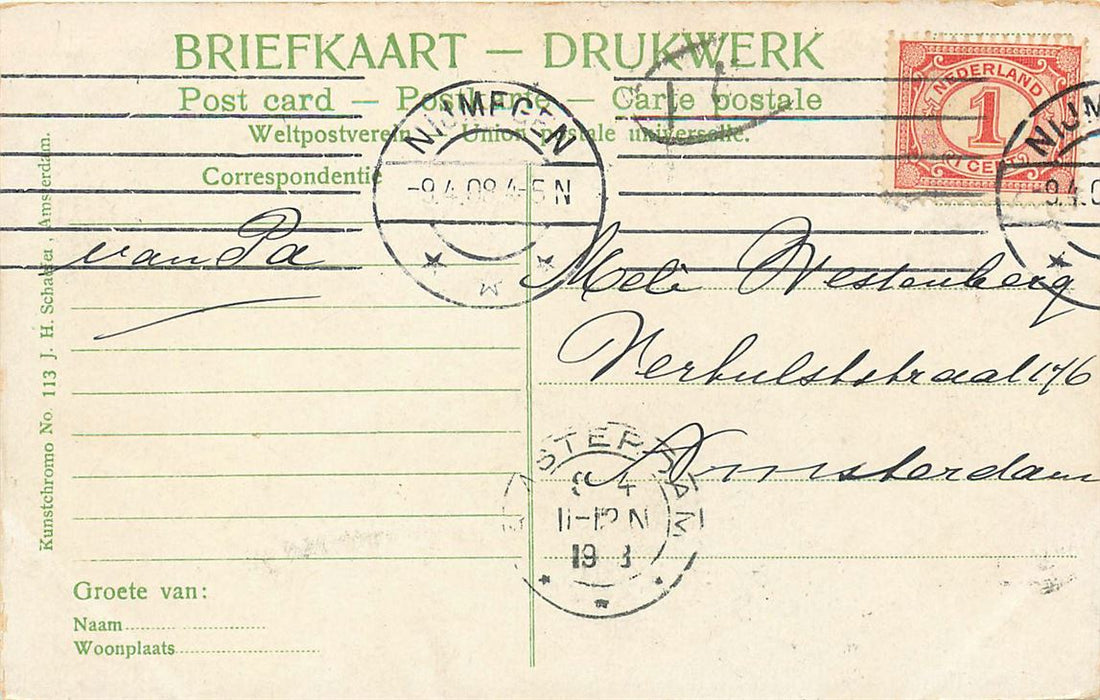 BRIEFKAART — DRUKWERK
Post card — Postkarte — Carte postale
Weltpostverein Union postale universelle.
Correspondentie
NEDERLAND
1
1 CENT
NIJMEGEN
-9.4.08 4-5 N
NIJM
-9.4.0
van Pa
Meli Westenberg
Verhulststraat 176
Amsterdam
AMSTERDAM
8 4
11-12 N
19 8
Groete van:
Naam
Woonplaats
Kunstchromo No. 113 J. H. Schaefer, Amsterdam.